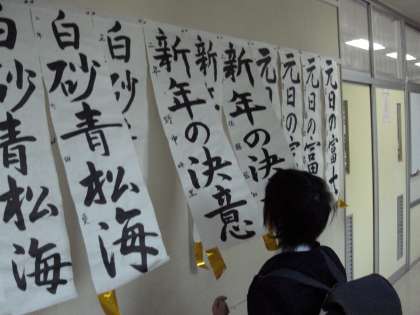 白砂青松海
白砂青松海
白砂青
新年の決意
新年
新年の決意
元日
元日の富
元日の富
元日の富士